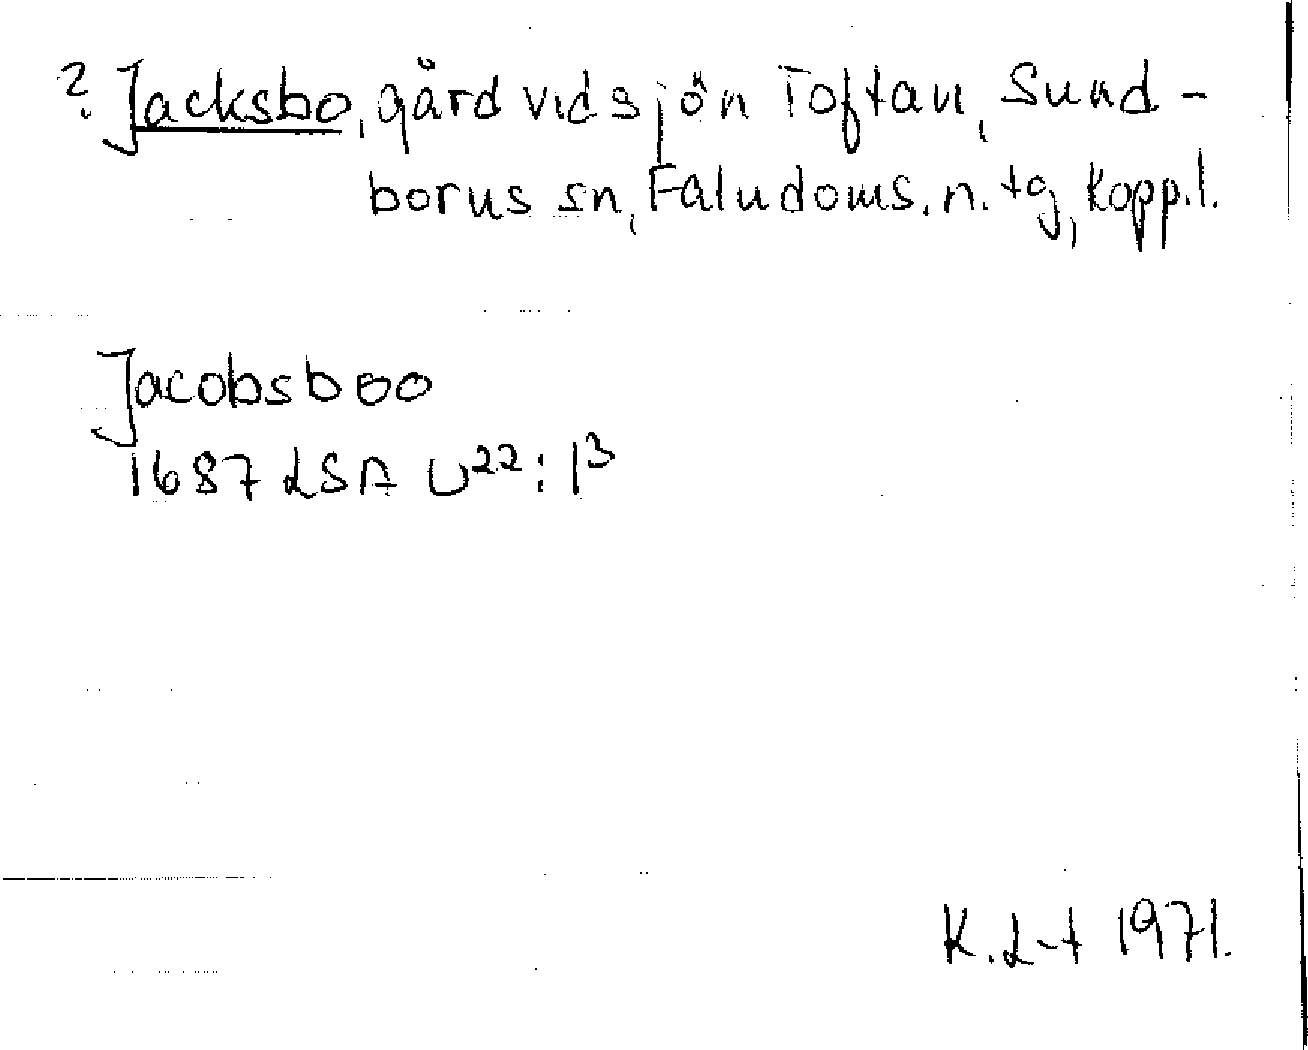 ? Jacksbo, gård vid sjön Toftan, Sund-
borns sn, Faludoms. n. tg, Kopp. l.
Jacobsboo
1687 LSA U22:13
K. L-t 1971.